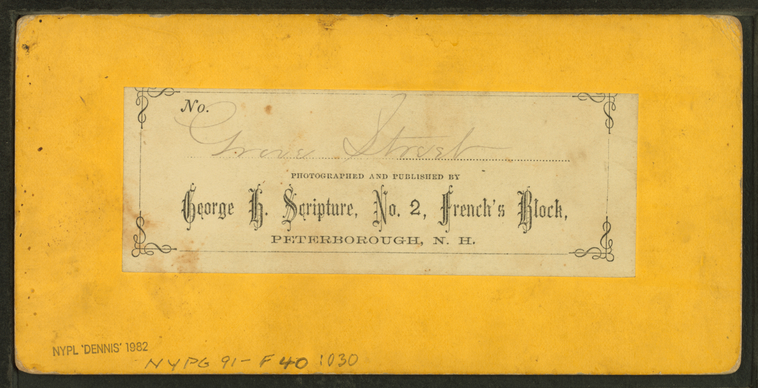 No.
Grove Street
PHOTOGRAPHED AND PUBLISHED BY
George H. Scripture, No. 2, French's Block,
PETERBOROUGH, N. H.
NYPL 'DENNIS' 1982
NYPG 91-F40 1030